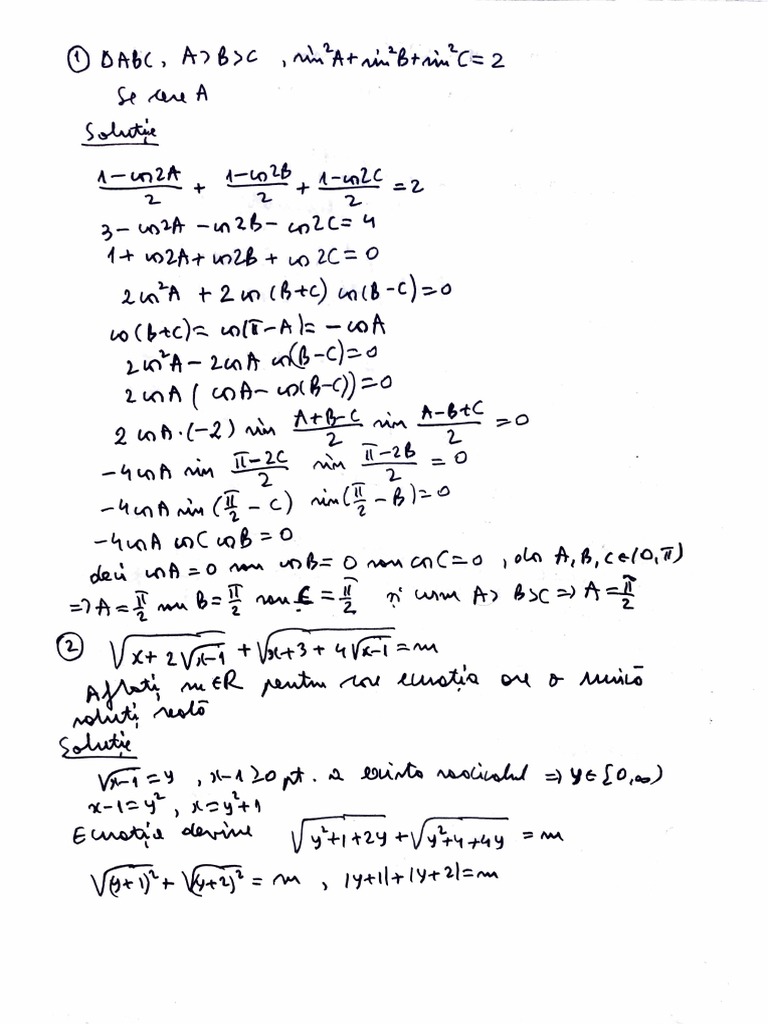 ① ΔABC, A>B>C, sin²A+sin²B+sin²C=2
Se cere A
Soluție
(1-cos2A)/2 + (1-cos2B)/2 + (1-cos2C)/2 = 2
3-cos2A-cos2B-cos2C=4
1+cos2A+cos2B+cos2C=0
2cos²A+2cos(B+C)cos(B-C)=0
cos(B+C)=cos(π-A)=-cosA
2cos²A-2cosA cos(B-C)=0
2cosA(cosA-cos(B-C))=0
2cosA·(-2)sin (A+B-C)/2 sin (A-B+C)/2 =0
-4cosA sin (π-2C)/2 sin (π-2B)/2 =0
-4cosA sin(π/2-C) sin(π/2-B)=0
-4cosA cosC cosB=0
deci cosA=0 sau cosB=0 sau cosC=0, dar A,B,C∈(0,π)
=>A=π/2 sau B=π/2 sau C=π/2 și cum A>B>C=>A=π/2
② √(x+2√(x-1)) + √(x+3+4√(x-1)) =m
Aflați m∈R pentru care ecuația are o unică
soluți reală
Soluție
√(x-1)=y, x-1≥0 pt. a exista radicalul => y∈[0,∞)
x-1=y², x=y²+1
Ecuația devine √(y²+1+2y)+√(y²+4+4y) =m
√(y+1)²+√(y+2)²=m, |y+1|+|y+2|=m